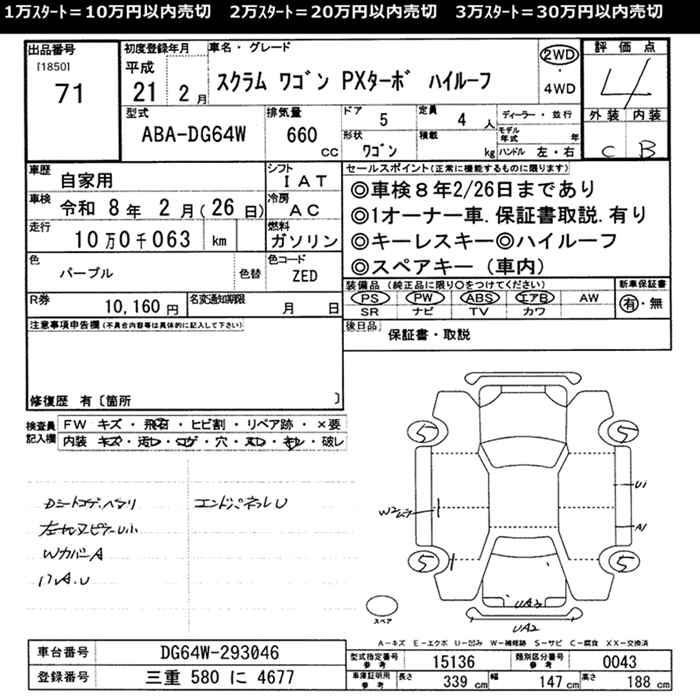 1万スタート＝10万円以内売切　2万スタート＝20万円以内売切　3万スタート＝30万円以内売切
出品番号 初度登録年月 車名・グレード 評価点
[1850] 平成 スクラム ワゴン PXターボ ハイルーフ 2WD・4WD 4
71 21 2月
型式 排気量 ドア 5 定員 4人 ディーラー・並行 外装 内装
ABA-DG64W 660cc 形状 ワゴン 積載 kg モデル年式 年 C B
ハンドル 左・右
車歴 自家用 シフト IAT セールスポイント(正常に機能するものに限ります)
車検 令和 8年 2月(26日) 冷房 AC ◎車検8年2/26日まであり
走行 10万0千063 km 燃料 ガソリン ◎1オーナー車.保証書取説.有り
◎キーレスキー◎ハイルーフ
色 パープル 色替 色コード ZED ◎スペアキー（車内）
装備品 (純正品に限り○をつけてください) 新車保証書
R券 10,160円 名変通知期限 月 日 PS PW ABS エアB AW 有・無
SR ナビ TV カワ
注意事項申告欄(不具合内容等は具体的に記入して下さい) 後日品 保証書・取説
修復歴 有〔箇所 〕
検査員記入欄 FW キズ・飛石・ヒビ割・リペア跡・×要
内装 キズ・汚レ・コゲ・穴・スレ・キレ・破レ
エンドパネルU
WカバーA
5 5
U1
A1
5 5
UA3
UA2
スペア
A-キズ E-エクボ U-凹み W-補修跡 S-サビ C-腐食 XX-交換済
車台番号 DG64W-293046 型式指定番号 参考 15136 類別区分番号 参考 0043
登録番号 三重 580 に 4677 車庫証明用 参考 長さ 339cm 幅 147cm 高さ 188cm